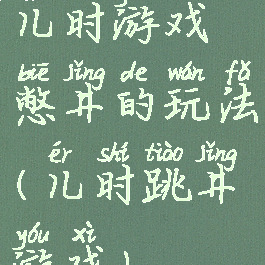 儿时游戏
biē jǐng de wán fǎ
憋井的玩法
ér shí tiào jǐng
(儿时跳井
yóu xì
游戏)